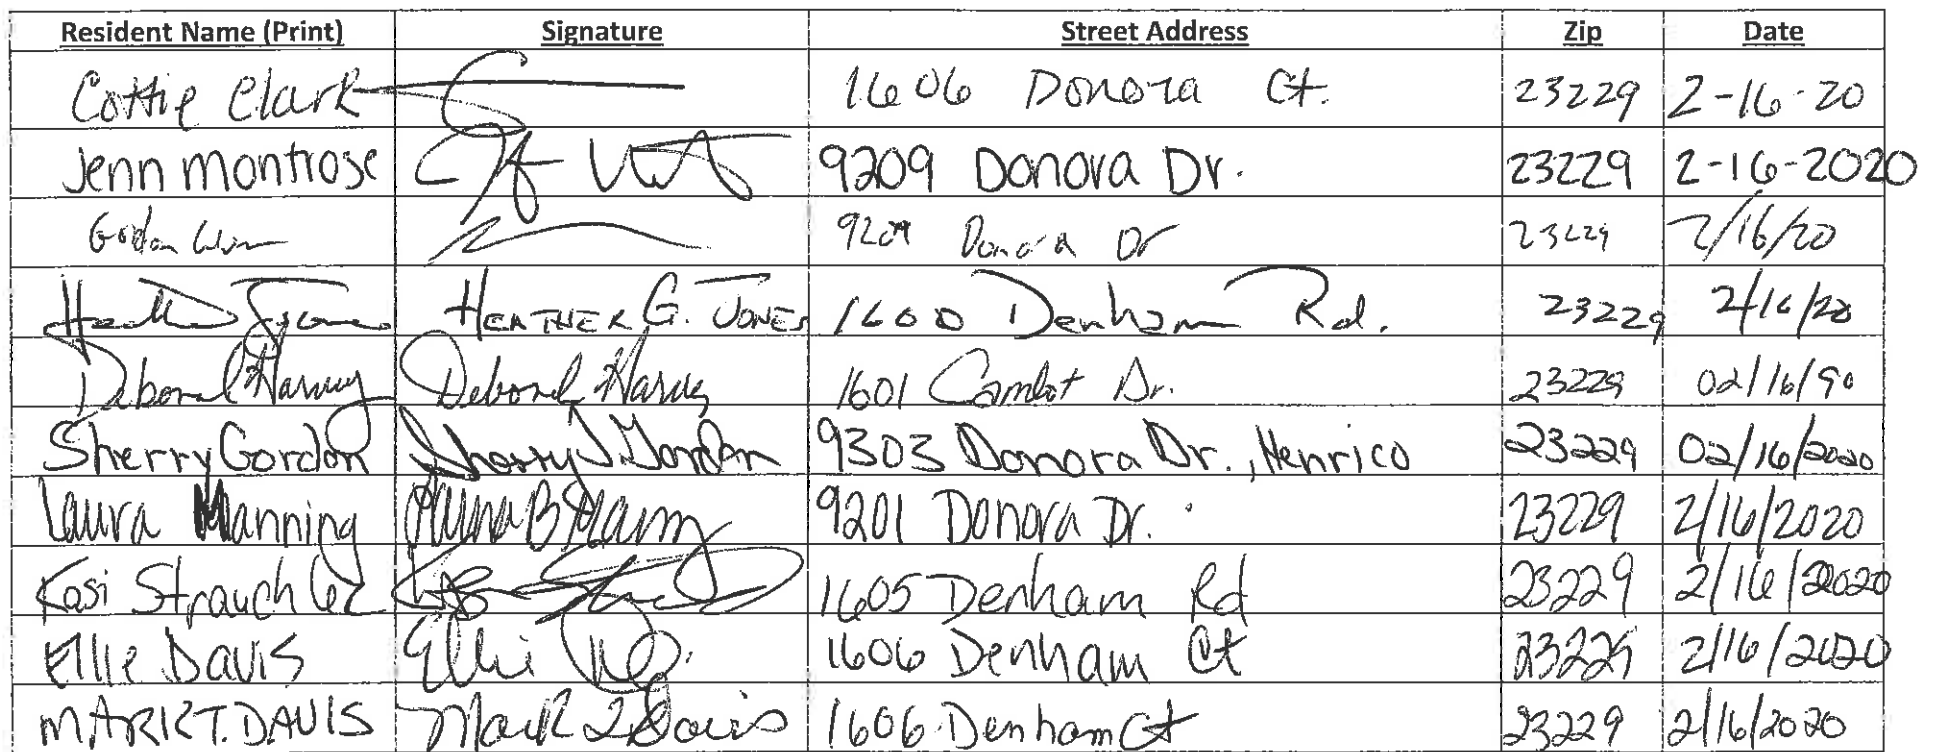 Resident Name (Print) Signature Street Address Zip Date
Cottie Clark 1606 Donora Ct. 23229 2-16-20
Jenn Montrose 9209 Donora Dr. 23229 2-16-2020
Gordon 9209 Donora Dr 23229 2/16/20
Heather Jones HEATHER G. JONES 1600 Denham Rd. 23229 2/16/20
Deborah Harvey Deborah Harvey 1601 Dr. 23229 02/16/90
Sherry Gordon Sherry J. Gordon 9303 Donora Dr., Henrico 23229 02/16/2020
Laura Manning Laura B Mann 9201 Donora Dr. 23229 2/16/2020
Kasi 1605 Denham Rd 23229 2/16/2020
Ellie Davis Ellie 1606 Denham Ct 23229 2/16/2020
MARK T. DAVIS Mark T Davis 1606 Denham Ct 23229 2/16/2020